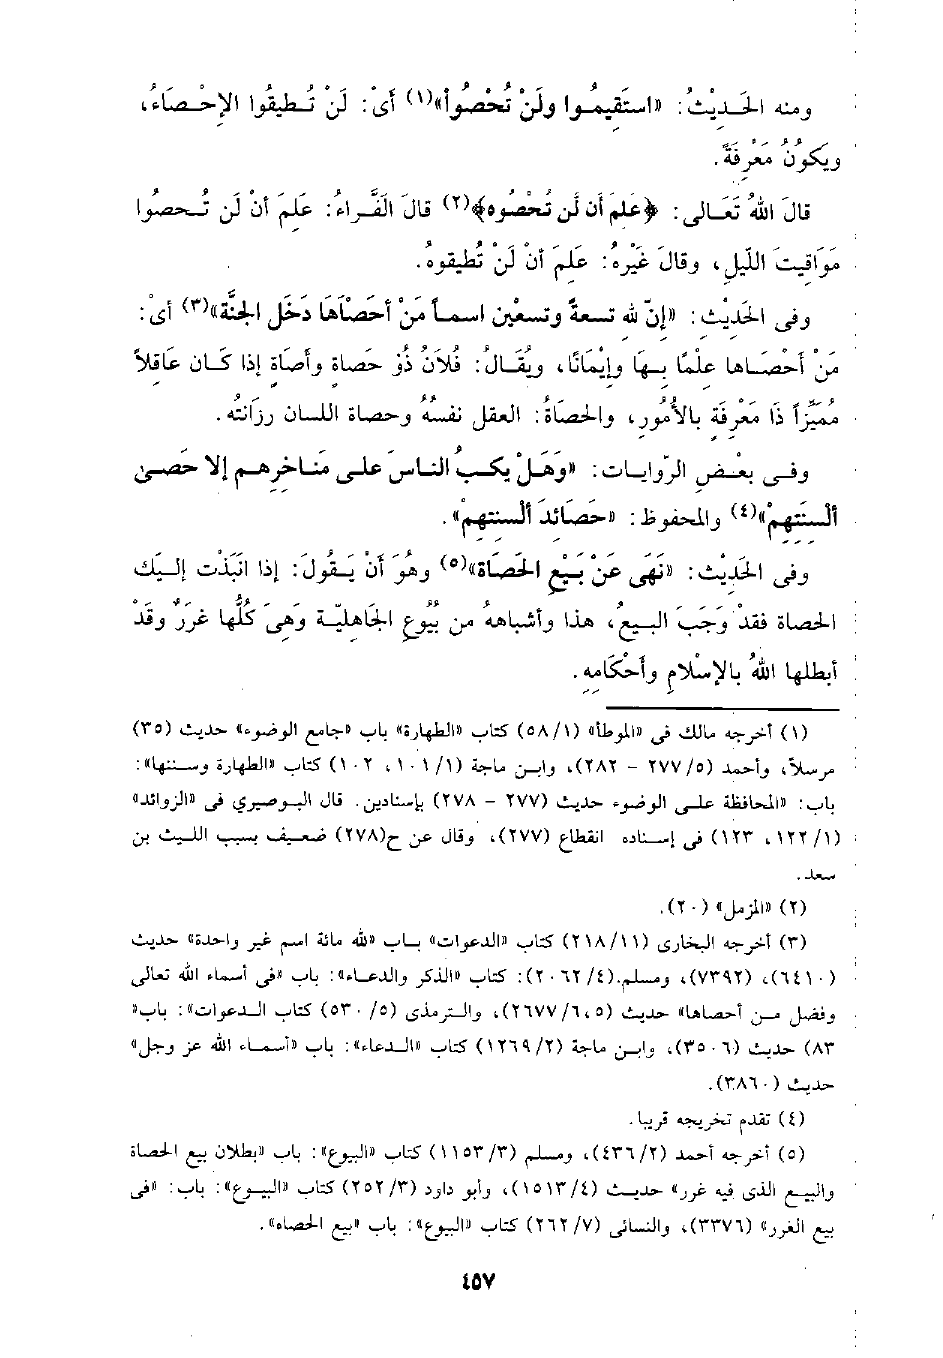 ومنه الحَديْثُ: «استَقيمُوا ولَنْ تُحْصُواْ»(١) أىْ: لَنْ تُطيقُوا الإحْصَاءُ،
ويكَونُ مَعْرِفَةً.
قالَ اللهُ تَعَالى: ﴿عَلمَ أَن لَن تُحْصُوه﴾(٢) قالَ الفَّراءُ: عَلِمَ أنْ لَن تُحصُوا
مَوَاقيتَ اللَّيلِ، وقالَ غَيْرُه: عَلِمَ أنْ لَنْ تُطيقوهُ.
وفى الحَديْث: «إنّ لله تسعةً وتسعْين اسماً مَنْ أحصَاهَا دَخَل الجنَّة»(٣) أىْ:
مَنْ أحْصَاها علْمًا بِهَا وإيْمَانًا، ويُقَالُ: فُلَانُ ذُوْ حَصاةٍ وأصَاة إذا كَان عَاقلاً
مُمَيّزاً ذَا مَعْرِفَةٍ بالأمُور، والحَصَاةُ: العقل نفسُهُ وحصاة اللسان رزَانته.
وفى بعْضِ الرّوايات: «وَهَلْ يكبُّ الناسَ على مَنَاخرِهِم إلا حَصىَ
ألسنَتِهِمْ»(٤) والمحفوظ: «حَصَائدَ ألسنتهمْ».
وفى الحَديْث: «نَهَى عَنْ بَيْعِ الحَصَاة»(٥) وهُوَ أنْ يَقُولَ: إذا انَبَذْت إليك
الحصاة فقدْ وَجَبَ البيعُ، هذا وأشباههُ من بُيُوعِ الجَاهليّة وَهىَ كُلُّها غرَرٌ وقَدْ
أبطلها اللهُ بالإسْلامِ وأحْكَامِهِ.
(١) أخرجه مالك فى «الموطأ» (٥٨/١) كتاب «الطهارة» باب «جامع الوضوء» حديث (٣٥)
مرسلاً، وأحمد (٢٧٧/٥ – ٢٨٢)، وابن ماجة (١٠١/١، ١٠٢) كتاب «الطهارة وسننها»:
باب: «المحافظة على الوضوء حديث (٢٧٧ – ٢٧٨) بإسنادين. قال البوصيري فى «الزوائد»
(١٢٢/١، ١٢٣) فى إسناده انقطاع (٢٧٧)، وقال عن ح(٢٧٨) ضعيف بسبب الليث بن
سعد.
(٢) «المزمل» (٢٠).
(٣) أخرجه البخارى (٢١٨/١١) كتاب «الدعوات» باب «لله مائة اسم غير واحدة» حديث
(٦٤١٠)، (٧٣٩٢)، ومسلم.(٢٠٦٢/٤): كتاب «الذكر والدعاء»: باب «فى أسماء الله تعالى
وفضل من أحصاها» حديث (٢٦٧٧/٦،٥)، والترمذى (٥٣٠/٥) كتاب الدعوات»: باب«
٨٣) حديث (٣٥٠٦)، وابن ماجة (١٢٦٩/٢) كتاب «الدعاء»: باب «أسماء الله عز وجل»
حديث (٣٨٦٠).
(٤) تقدم تخريجه قريبا.
(٥) أخرجه أحمد (٤٣٦/٢)، ومسلم (١١٥٣/٣) كتاب «البيوع»: باب «بطلان بيع الحصاة
والبيع الذى فيه غرر» حديث (١٥١٣/٤)، وأبو داود (٢٥٢/٣) كتاب «البيوع»: باب: «فى
بيع الغرر» (٣٣٧٦)، والنسائى (٢٦٢/٧) كتاب «البيوع»: باب «بيع الحصاه».
٤٥٧